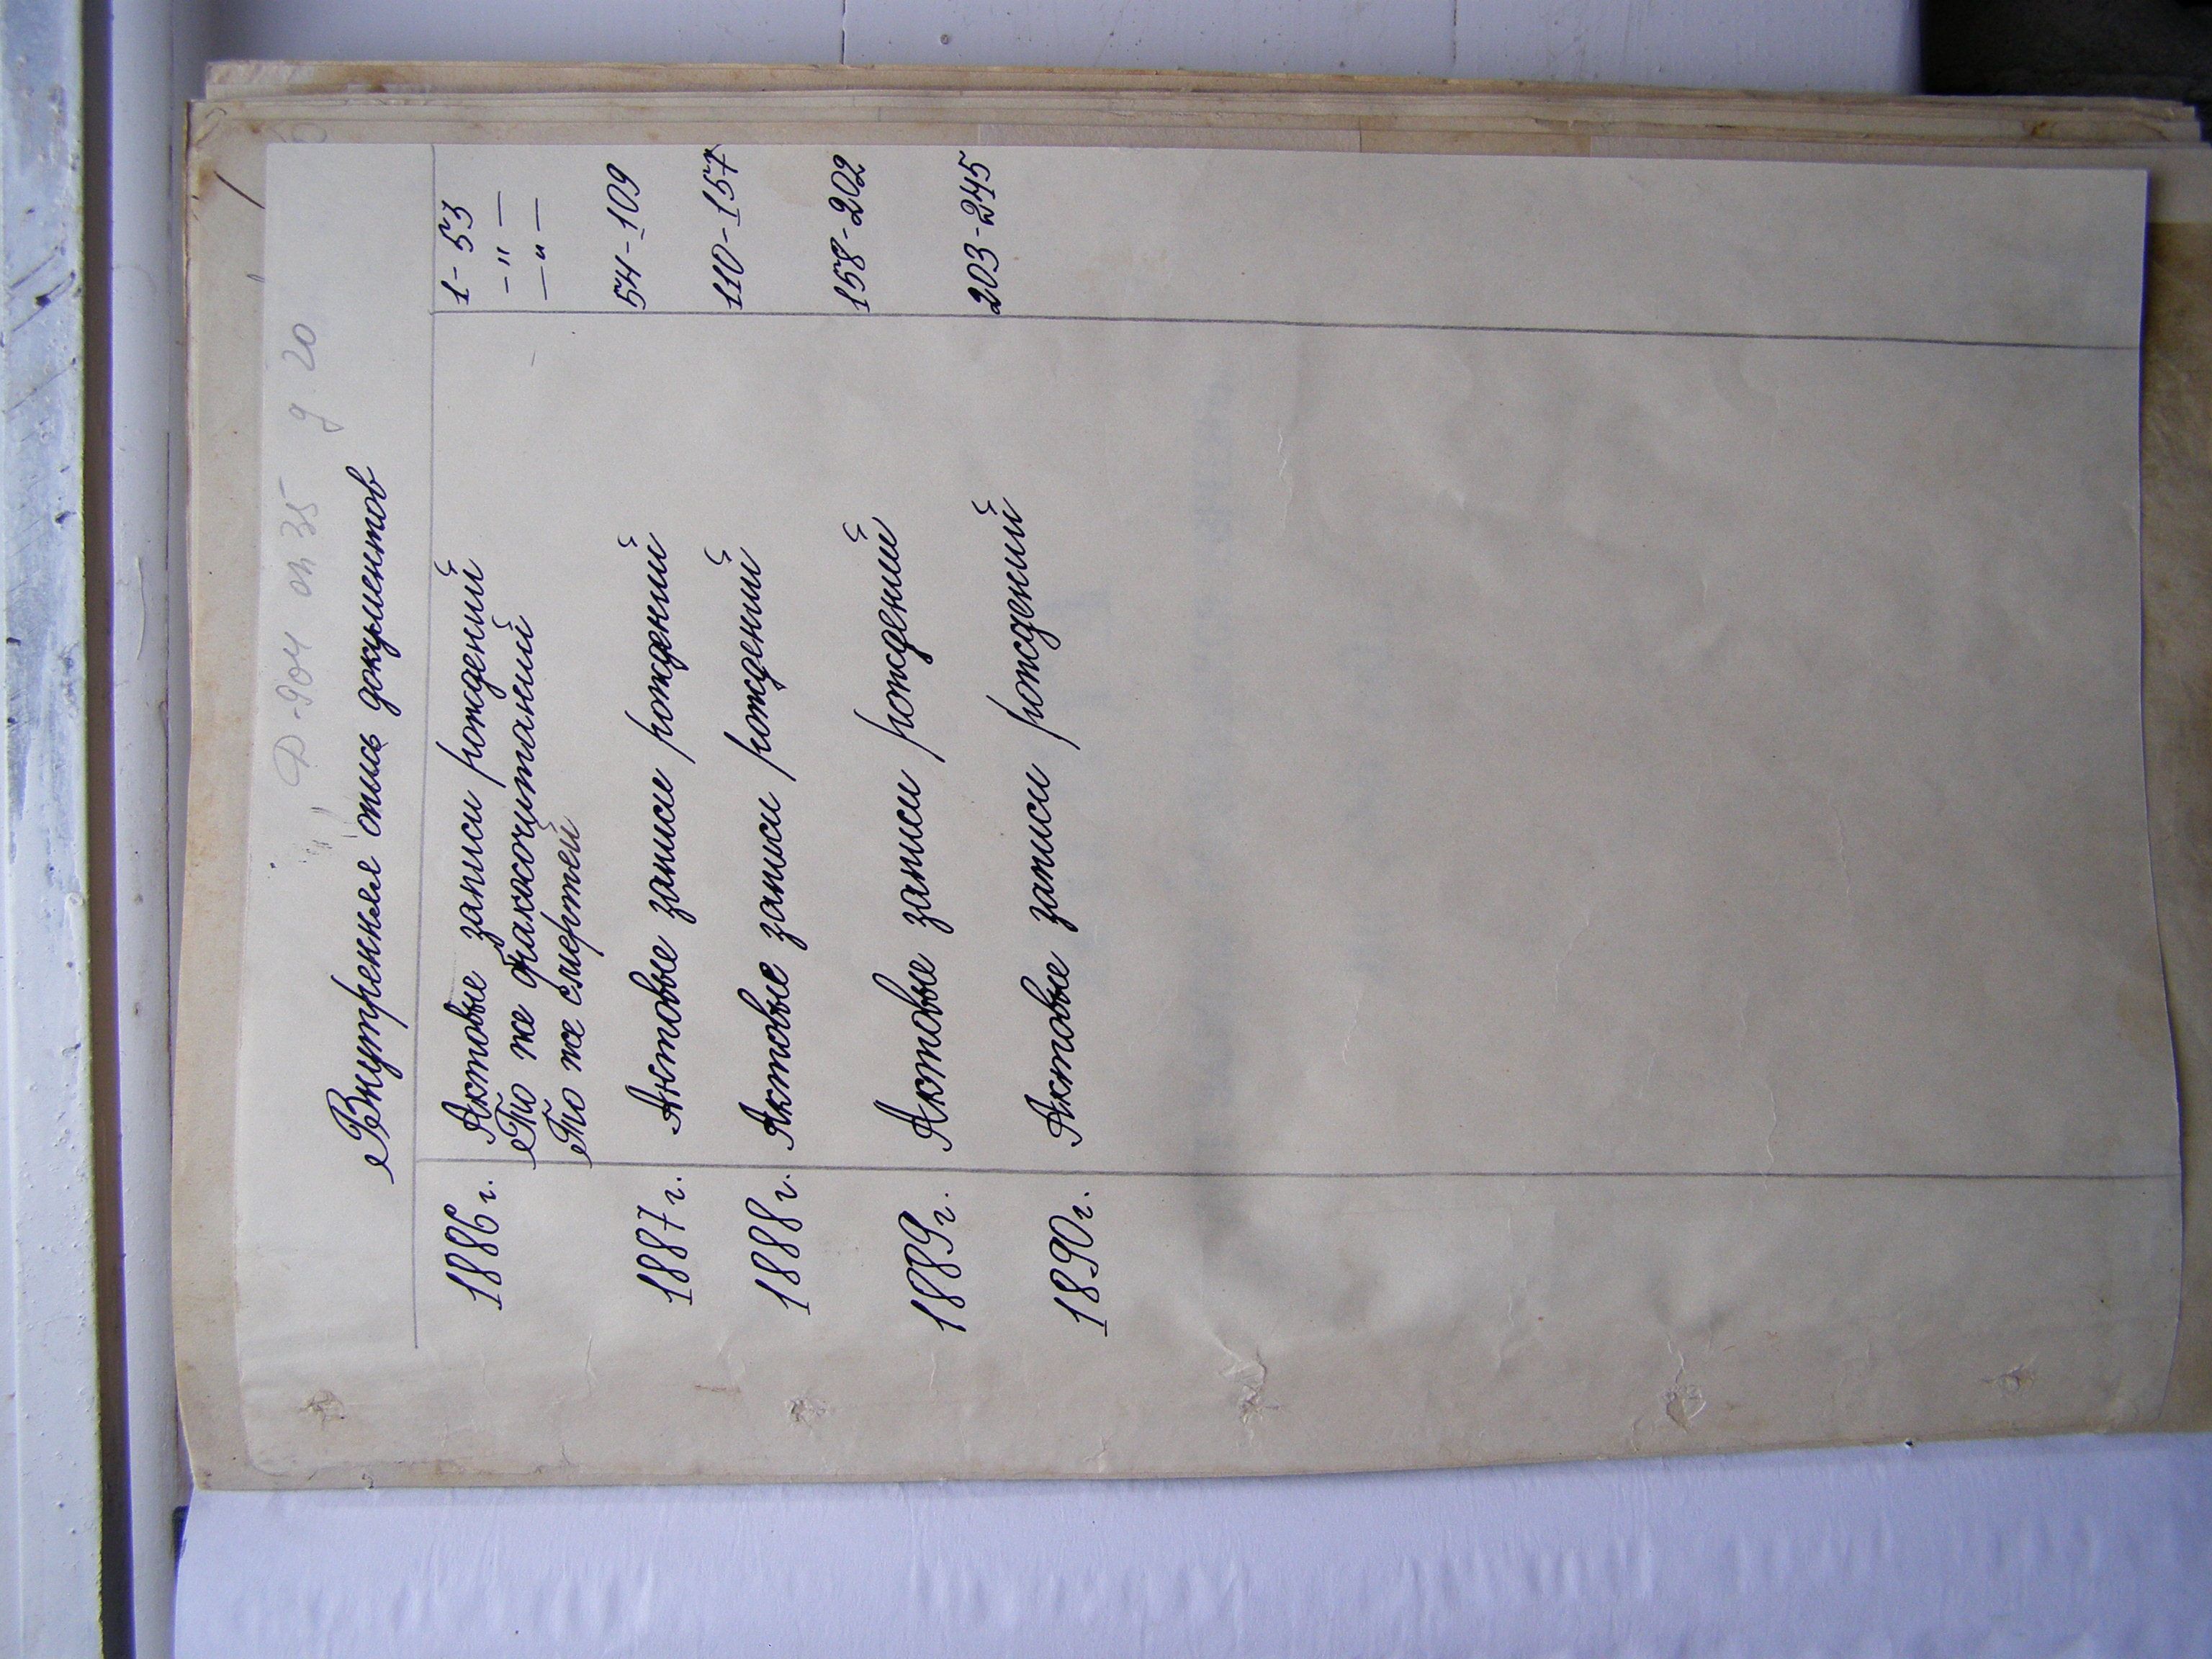 Ф-904 оп 35 д. 20
Внутренняя опись документов
1886 г. Актовые записи рождений 1-53
То же бракосочитаний -"-
То же смертей -"-
1887 г. Актовые записи рождений 54-109
1888 г. Актовые записи рождений 110-157
1889 г. Актовые записи рождений 158-202
1890 г. Актовые записи рождений 203-245